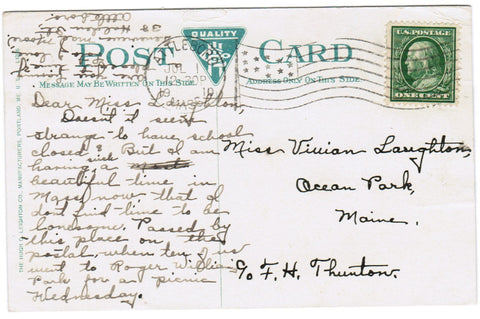 POST CARD
QUALITY
MESSAGE MAY BE WRITTEN ON THIS SIDE.
ADDRESS ONLY ON THIS SIDE.
U.S. POSTAGE
ONE CENT
THE HUGH C. LEIGHTON CO., MANUFACTURERS, PORTLAND, ME. U.S.A.
Dear Miss Laughton,
Doesn't it seem
strange to have school
closed? But I am
having a such
beautiful time in
Mass. now that I
don't find time to be
lonesome. Passed by
this place on this
postal, when ten of us
went to Roger Williams
Park for a picnic
Wednesday.
Miss Vivian Laughton,
Ocean Park,
Maine.
c/o F. H. Thunton.